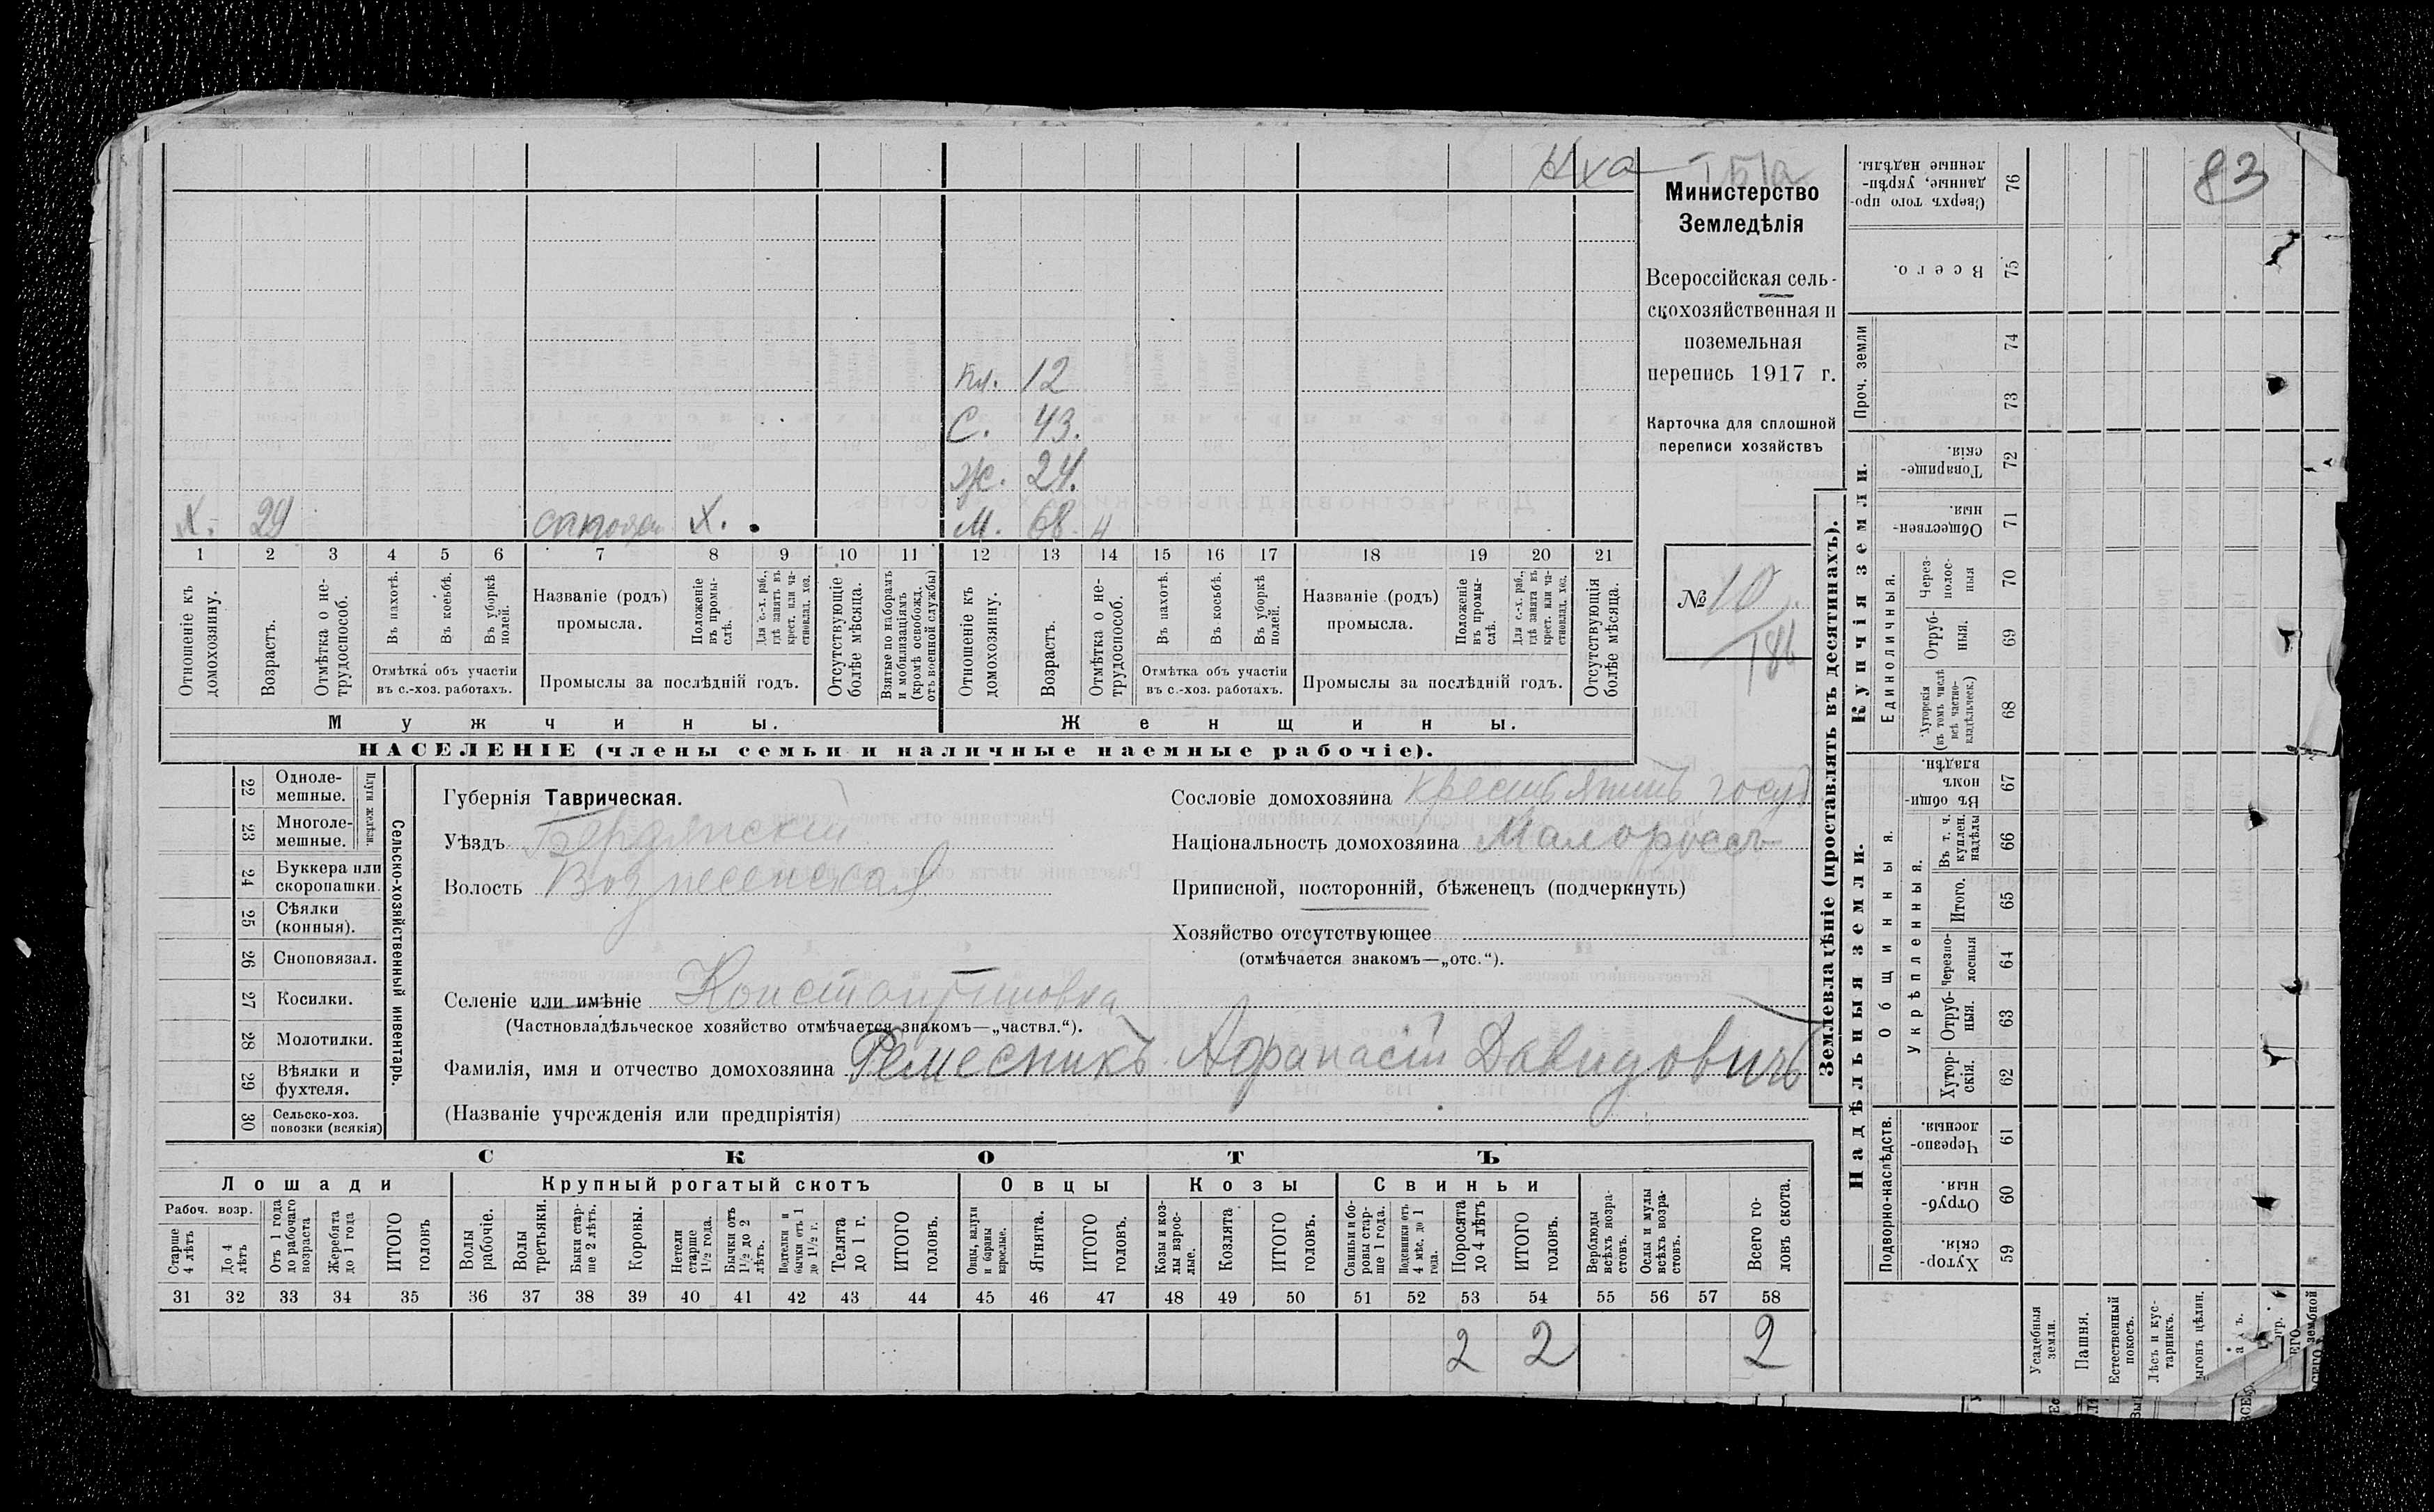 83
Министерство
Земледѣлія
Всероссійская сель-
скохозяйственная и
поземельная
перепись 1917 г.
Карточка для сплошной
переписи хозяйствъ
№ 10
186
пл. 12
С. 43.
Ж. 24.
Х. 29 Х. М. 68
1 2 3 4 5 6 7 8 9 10 11 12 13 14 15 16 17 18 19 20 21
Отношеніе къ домохозяину.
Возрастъ.
Отмѣтка о не-трудоспособ.
Въ пахотѣ.
Въ косьбѣ.
Въ уборкѣ полей.
Отмѣтка объ участіи
въ с.-хоз. работахъ.
Названіе (родъ)
промысла.
Положеніе въ промы-слѣ.
Для с.-х. раб., гдѣ занятъ въ крест. или ча-стновлад. хоз.
Промыслы за послѣдній годъ.
Отсутствующіе болѣе мѣсяца.
Взятые по наборамъ и мобилизаціямъ (кромѣ освобожд. отъ военной службы)
Отношеніе къ домохозяину.
Возрастъ.
Отмѣтка о не-трудоспособ.
Въ пахотѣ.
Въ косьбѣ.
Въ уборкѣ полей.
Отмѣтка объ участіи
въ с.-хоз. работахъ.
Названіе (родъ)
промысла.
Положеніе въ промы-слѣ.
Для с.-х. раб., гдѣ занята въ крест. или ча-стновлад. хоз.
Промыслы за послѣдній годъ.
Отсутствующія болѣе мѣсяца.
Мужчины. Женщины.
НАСЕЛЕНІЕ (члены семьи и наличные наемные рабочіе).
Сельско-хозяйственный инвентарь.
Плуги желѣзн.
22 Одноле-мешные.
23 Многоле-мешные.
24 Буккера или скоропашки.
25 Сѣялки (конныя).
26 Сноповязал.
27 Косилки.
28 Молотилки.
29 Вѣялки и фухтеля.
30 Сельско-хоз. повозки (всякія)
Губернія Таврическая.
Уѣздъ Бердянскій
Волость Вознесенская
Селеніе или имѣніе Константиновка
(Частновладѣльческое хозяйство отмѣчается знакомъ—„частвл.“).
Фамилія, имя и отчество домохозяина Ремесникъ Афанасій Давидовичъ
(Названіе учрежденія или предпріятія)
Сословіе домохозяина крестьянинъ госуд
Національность домохозяина Малороссъ
Приписной, посторонній, бѣженецъ (подчеркнуть)
Хозяйство отсутствующее
(отмѣчается знакомъ—„отс.“).
СКОТЪ
Лошади Крупный рогатый скотъ Овцы Козы Свиньи
Рабоч. возр.
Старше 4 лѣтъ
До 4 лѣтъ
Отъ 1 года до рабочаго возраста
Жеребята до 1 года
ИТОГО головъ
Волы рабочіе.
Волы третьяки.
Быки стар-ше 2 лѣтъ.
Коровы.
Нетели старше 1½ года.
Бычки отъ 1½ до 2 лѣтъ.
Подтелки и бычки отъ 1 до 1½ г.
Телята до 1 г.
ИТОГО головъ.
Овцы, валухи и бараны взрослые.
Ягнята.
ИТОГО головъ.
Козы и коз-лы взрос-лые.
Козлята
ИТОГО головъ.
Свиньи и бо-ровы стар-ше 1 года.
Подсвинки отъ 4 мѣс. до 1 года.
Поросята до 4 лѣтъ
ИТОГО головъ.
Верблюды всѣхъ возра-стовъ.
Ослы и мулы всѣхъ возра-стовъ.
Всего го-ловъ скота.
31 32 33 34 35 36 37 38 39 40 41 42 43 44 45 46 47 48 49 50 51 52 53 54 55 56 57 58
2 2 2
Землевладѣніе (проставлять въ десятинахъ).
Купчія земли.
Надѣльныя земли.
Сверхъ того про-данные, укрѣп-ленные надѣлы. 76
Всего. 75
Проч. земли 74
73
Товарище-скія. 72
Обществен-ныя. 71
Единоличныя.
Через-полос-ныя 70
Отруб-ныя. 69
Хуторскія (въ томъ числѣ всѣ частно-владѣльческ.) 68
Общинныя.
Въ общи-номъ владѣн. 67
Укрѣпленныя.
Въ т. ч. куплен. надѣлы 66
Итого. 65
Черезпо-лосныя 64
Отруб-ныя. 63
Хутор-скія. 62
Подворно-наслѣдств.
Черезпо-лосныя. 61
Отруб-ныя. 60
Хутор-скія. 59
Усадебныя земли.
Пашня.
Естественный покосъ.
Лѣсъ и кус-тарникъ.